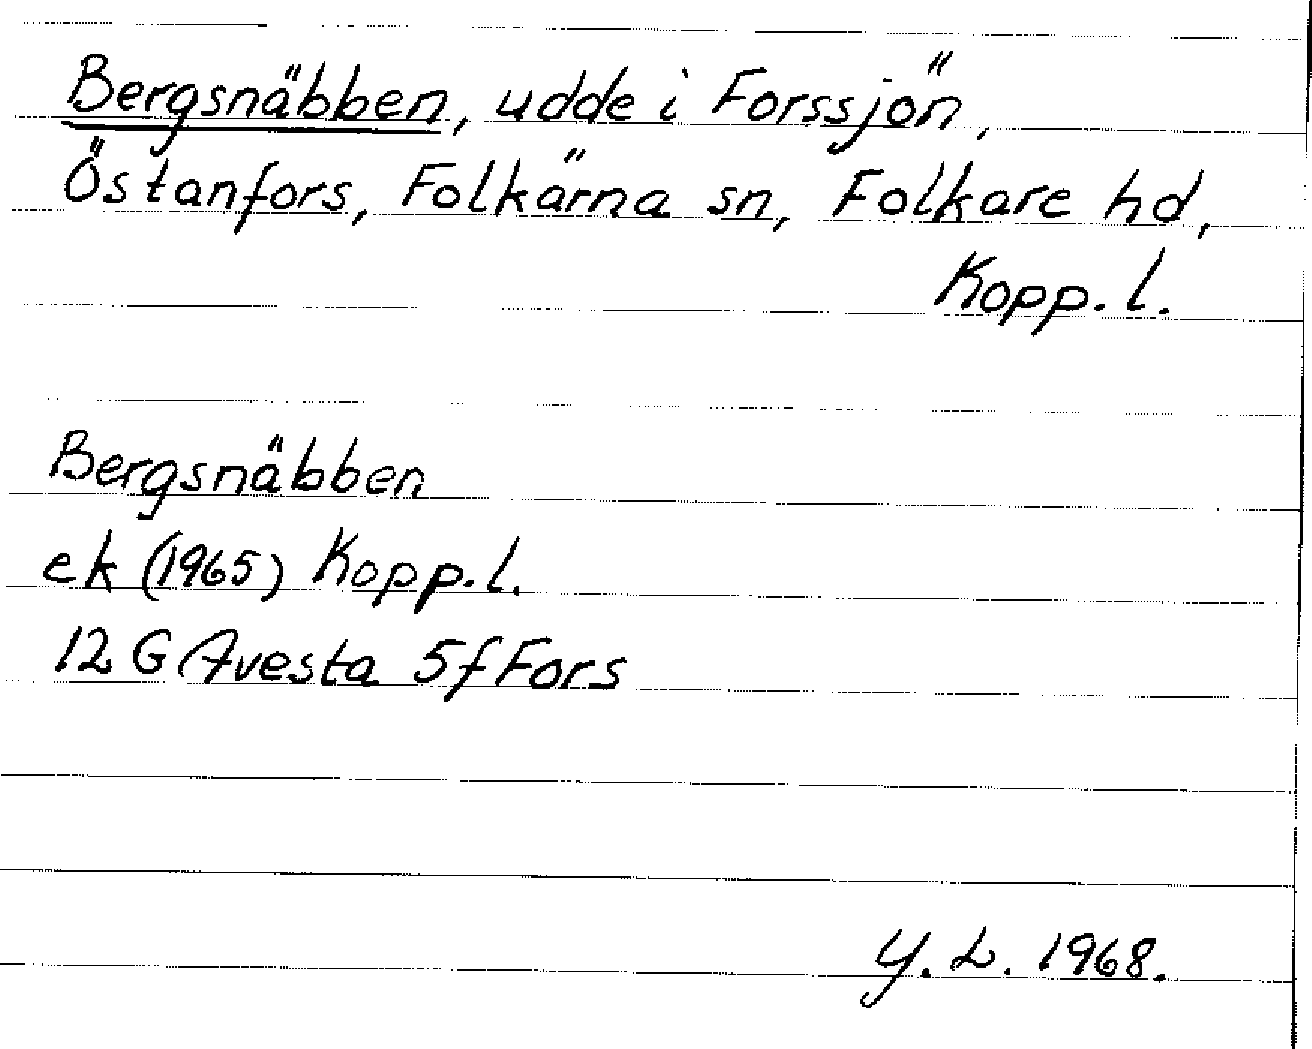 Bergsnäbben, udde i Forssjön,
Östanfors, Folkärna sn, Folkare hd,
Kopp. l.
Bergsnäbben
ek (1965) Kopp. l.
12 G Avesta 5f Fors
Y. L. 1968.